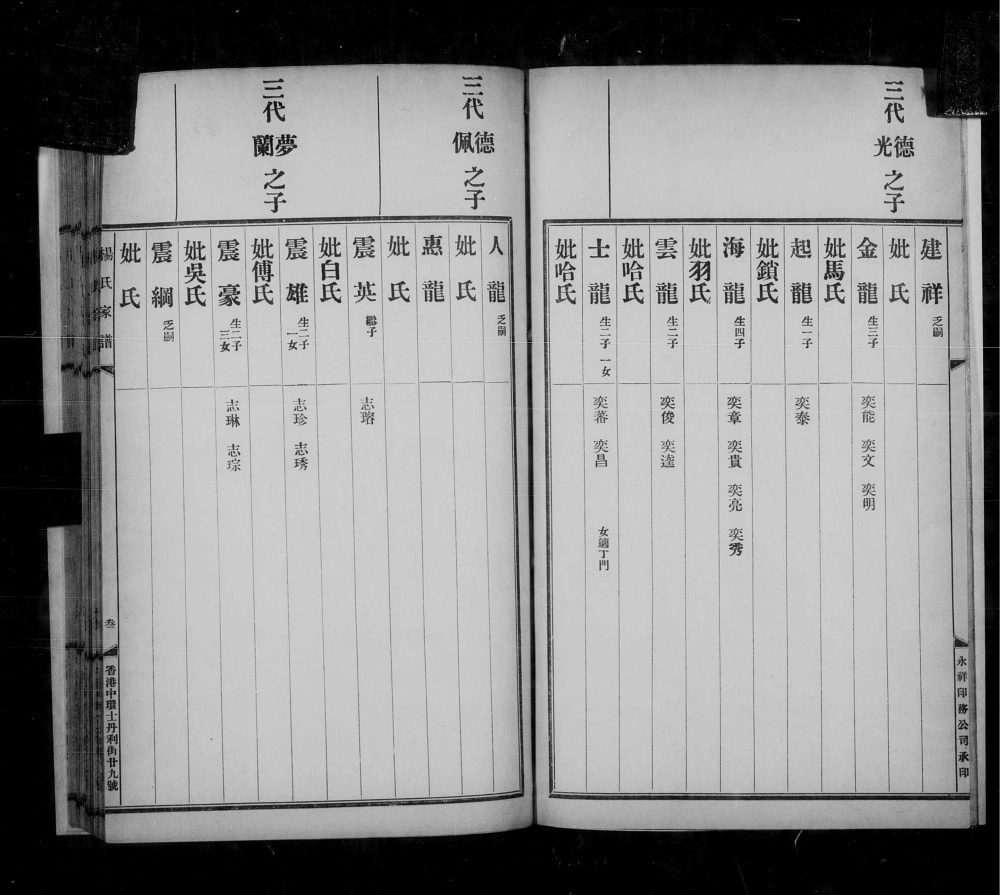 三代 德光 之子
建祥 乏嗣
妣氏
金龍 生三子 奕能 奕文 奕明
妣馬氏
起龍 生一子 奕泰
妣鎖氏
海龍 生四子 奕章 奕貴 奕亮 奕秀
妣羽氏
雲龍 生二子 奕俊 奕達
妣哈氏
士龍 生二子 一女 奕蕃 奕昌 女適丁門
妣哈氏
永祥印務公司承印
三代 德佩 之子
人龍 乏嗣
妣氏
惠龍
妣氏
三代 夢蘭 之子
震英 繼子 志瑢
妣白氏
震雄 生二子 一女 志珍 志琇
妣傅氏
震豪 生二子 三女 志琳 志琮
妣吳氏
震綱 乏嗣
妣氏
楊氏家譜
叁
香港中環士丹利街廿九號